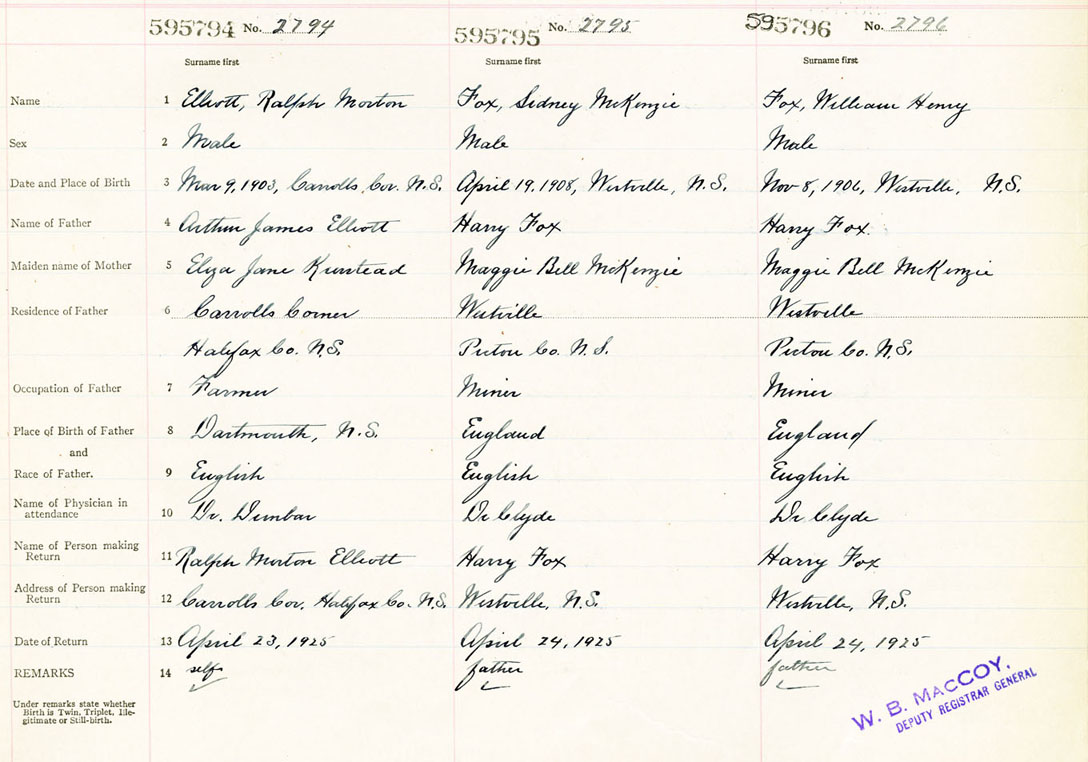 595794 No. 2794 595795 No. 2795 595796 No. 2796
Surname first Surname first Surname first
Name 1 Elliott, Ralph Morton Fox, Sidney McKenzie Fox, William Henry
Sex 2 Male Male Male
Date and Place of Birth 3 Mar 9, 1903, Carrolls Cor. N.S. April 19, 1908, Westville, N.S. Nov 8, 1906, Westville, N.S.
Name of Father 4 Arthur James Elliott Harry Fox Harry Fox.
Maiden name of Mother 5 Eliza Jane Kinstead Maggie Bell McKenzie Maggie Bell McKenzie
Residence of Father 6 Carrolls Corner Westville Westville
Halifax Co. N.S. Pictou Co. N.S. Pictou Co. N.S.
Occupation of Father 7 Farmer Miner Miner
Place of Birth of Father 8 Dartmouth, N.S. England England
and
Race of Father. 9 English English English
Name of Physician in
attendance 10 Dr. Dunbar Dr Clyde Dr Clyde
Name of Person making
Return 11 Ralph Morton Elliott Harry Fox Harry Fox
Address of Person making
Return 12 Carrolls Cor. Halifax Co. N.S. Westville, N.S. Westville, N.S.
Date of Return 13 April 23, 1925 April 24, 1925 April 24, 1925
REMARKS 14 self father father
Under remarks state whether
Birth is Twin, Triplet, Ille-
gitimate or Still-birth.
W. B. MACCOY,
DEPUTY REGISTRAR GENERAL